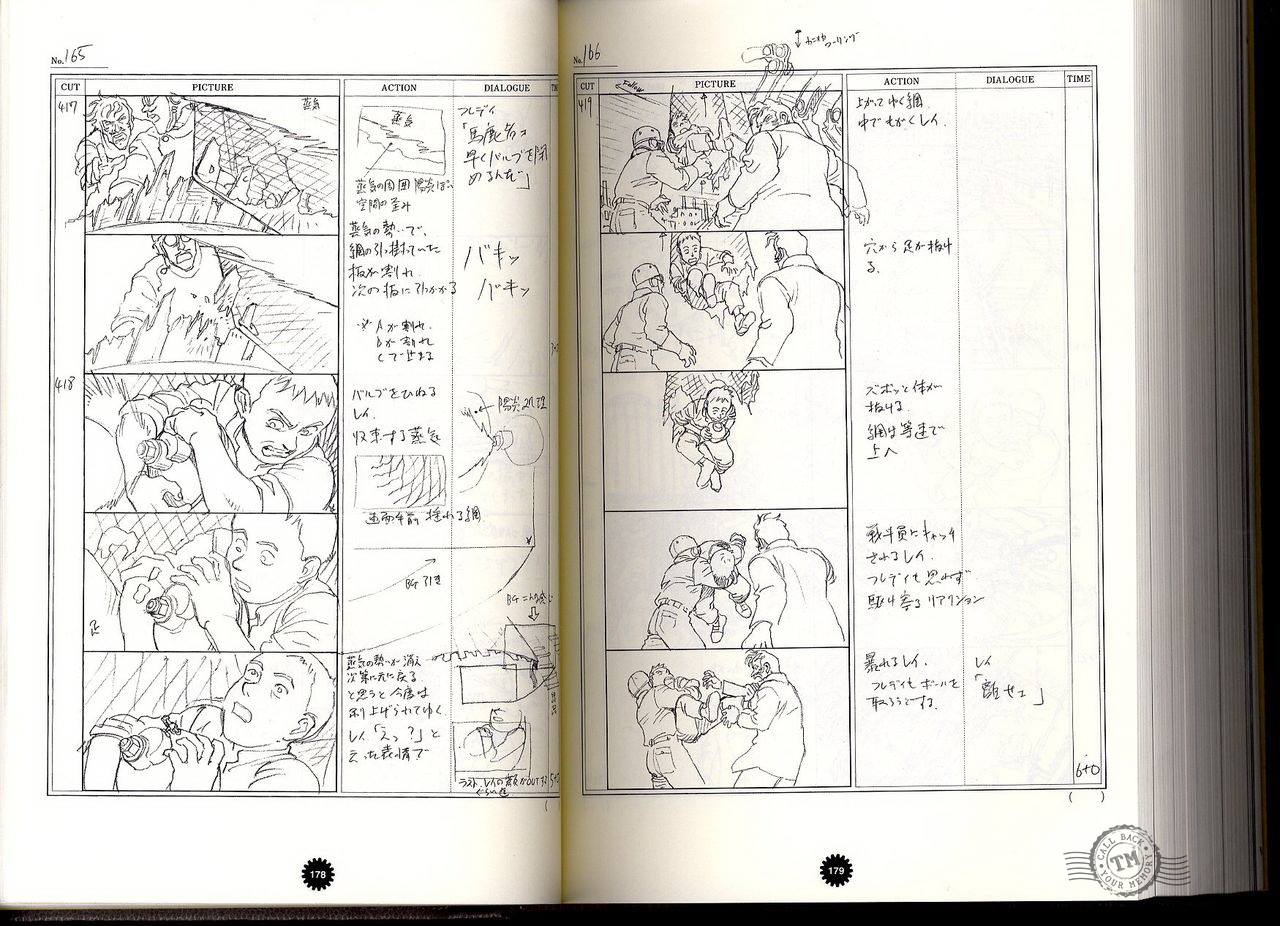 No. 165
CUT PICTURE ACTION DIALOGUE
417
蒸気
蒸気
蒸気の周囲 陽炎ぽい
空間の歪み
蒸気の勢いで、
網の引っ掛っていた
板が割れ
次の板に引っかかる
※Aが割れ
Bが割れ
Cで止まる
フレディ
「馬鹿者ヨ
早くバルブを閉
めるんだ」
バキッ
バキッ
418
バルブをひねる
レイ.
収束する蒸気
陽炎処理
画面手前 揺れる網
BG引き
蒸気の勢いが消え
次第に元に戻る
と思うと今度は
吊り上げられてゆく
レイ「えっ?」と
云った表情で
ラスト、レイの顔がOUTする
ぐらい迄
178
No. 166
CUT PICTURE ACTION DIALOGUE TIME
419
Follow
上がってゆく網
中でもがくレイ.
穴から足が抜け
る.
ズボッと体が
抜ける.
網は等速で
上へ
戦斗員にキャッチ
されるレイ.
フレディも思わず
駆け寄るリアクション
暴れるレイ.
フレディもボールを
取ろうとする.
レイ
「離せョ」
6+0
( )
179
CALL BACK
TM
YOUR MEMORY